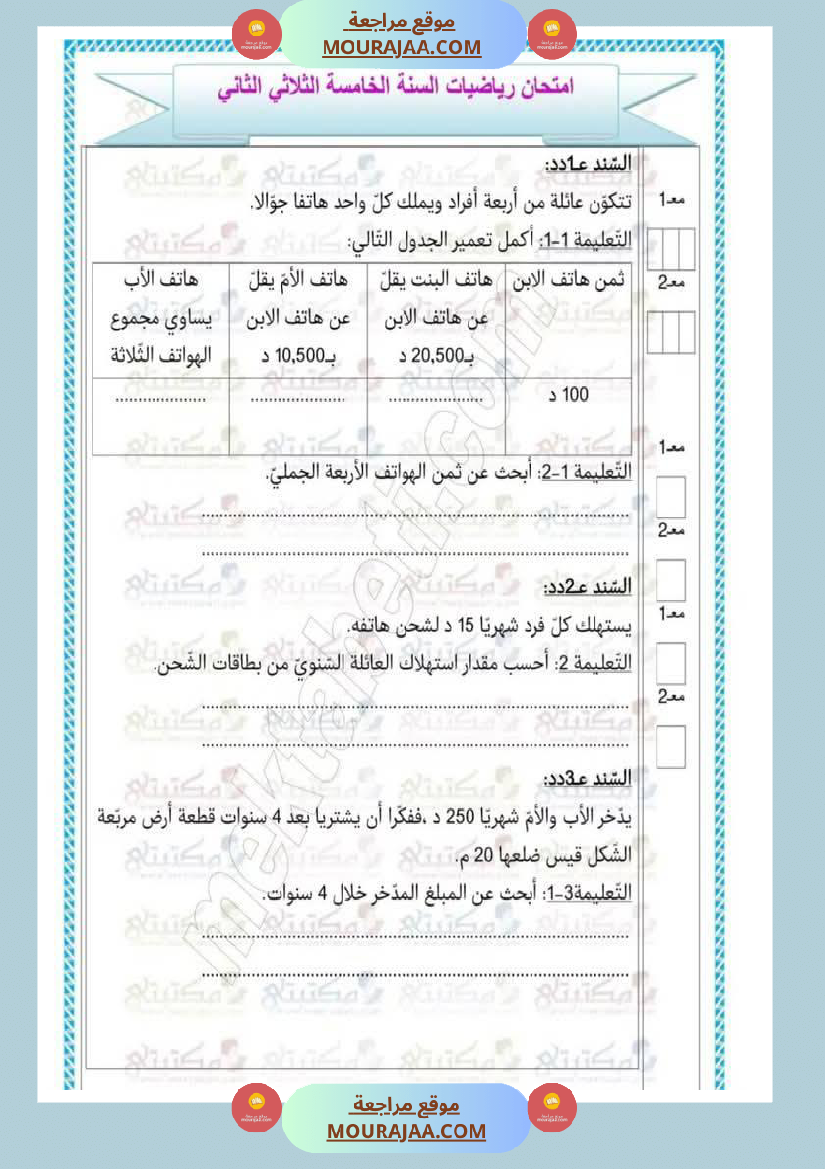 موقع مراجعة
MOURAJAA.COM
امتحان رياضيات السنة الخامسة الثلاثي الثاني
السّند عـ1دد:
تتكوّن عائلة من أربعة أفراد ويملك كلّ واحد هاتفا جوّالا.
معـ1
التّعليمة 1-1: أكمل تعمير الجدول التّالي:
معـ2
ثمن هاتف الابن
هاتف البنت يقلّ
عن هاتف الابن
بـ20,500 د
هاتف الأمّ يقلّ
عن هاتف الابن
بـ10,500 د
هاتف الأب
يساوي مجموع
الهواتف الثّلاثة
100 د
....................
....................
....................
معـ1
التّعليمة 1-2: أبحث عن ثمن الهواتف الأربعة الجمليّ.
معـ2
السّند عـ2دد:
معـ1
يستهلك كلّ فرد شهريّا 15 د لشحن هاتفه.
التّعليمة 2: أحسب مقدار استهلاك العائلة السّنويّ من بطاقات الشّحن.
معـ2
السّند عـ3دد:
يدّخر الأب والأمّ شهريّا 250 د ،ففكّرا أن يشتريا بعد 4 سنوات قطعة أرض مربّعة
الشّكل قيس ضلعها 20 م.
التّعليمة3-1: أبحث عن المبلغ المدّخر خلال 4 سنوات.
mektabeti.com
موقع مراجعة
MOURAJAA.COM